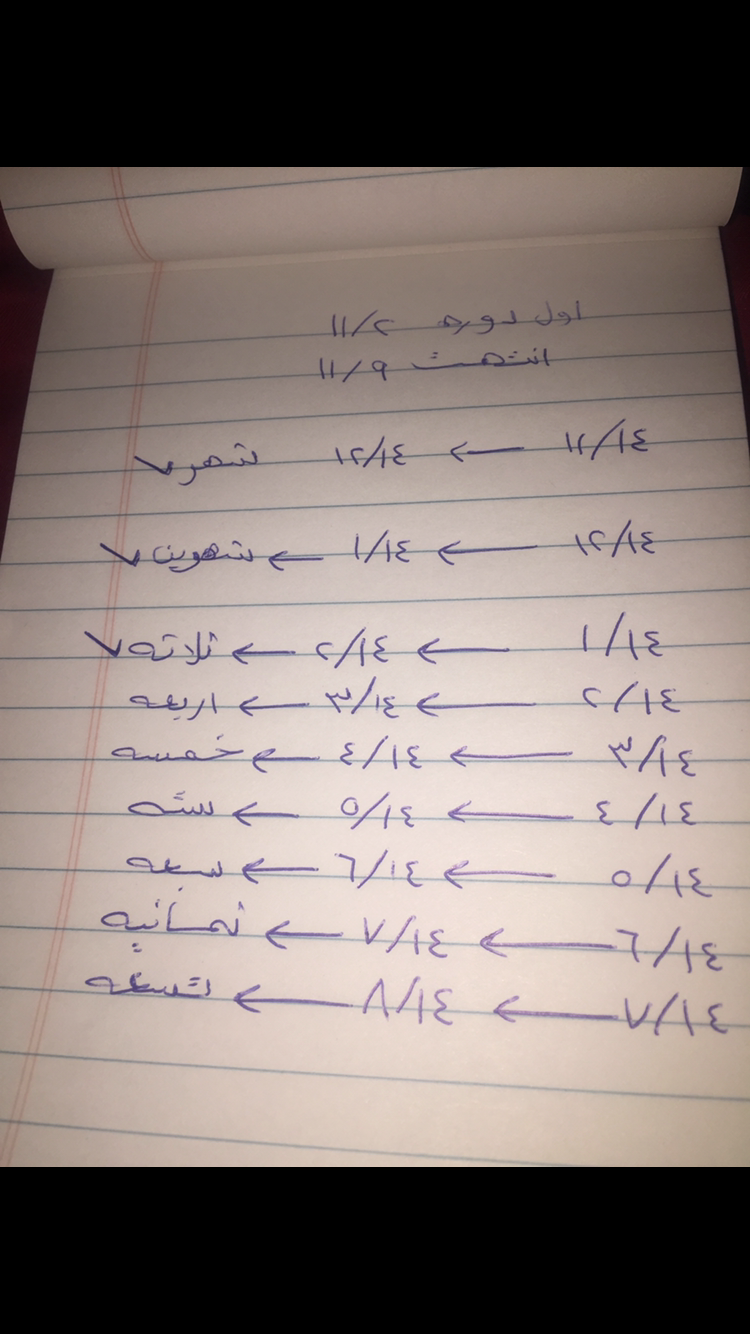 اول دوره ١١/٢
انتهت ١١/٩
١١/١٤ ← ١٢/١٤ شهر ✓
١٢/١٤ ← ١/١٤ ← شهرين ✓
١/١٤ ← ٢/١٤ ← ثلاثه ✓
٢/١٤ ← ٣/١٤ ← اربعه
٣/١٤ ← ٤/١٤ ← خمسه
٤/١٤ ← ٥/١٤ ← سته
٥/١٤ ← ٦/١٤ ← سبعه
٦/١٤ ← ٧/١٤ ← ثمانيه
٧/١٤ ← ٨/١٤ ← تسعه